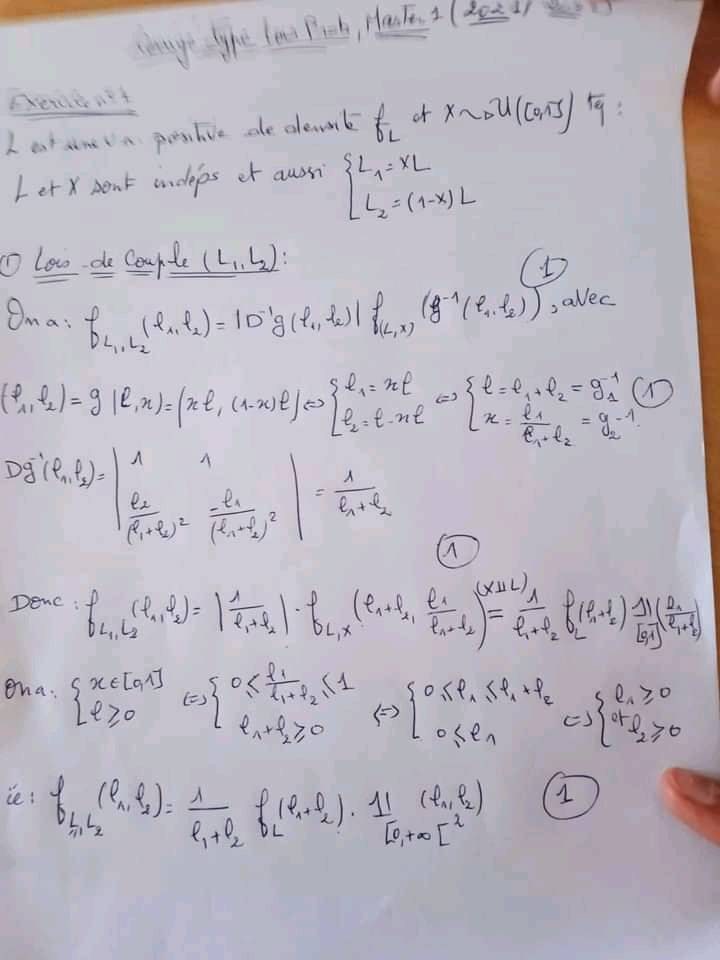 corrigé type Lois Prob, Master 1 (2021/
Exercice n°1
L est une v.a positive de densité f_L et X ~> U([0,1]) tq :
L et X sont indéps et aussi { L₁ = XL
L₂ = (1-X) L
① Lois de Couple (L₁, L₂) :
On a : f_{L₁,L₂}(ℓ₁,ℓ₂) = |D⁻¹g(ℓ₁,ℓ₂)| f_{(L,X)} (g⁻¹(ℓ₁,ℓ₂)), avec ①
(ℓ₁,ℓ₂) = g(ℓ,x) = (xℓ, (1-x)ℓ) ⇔ { ℓ₁ = xℓ ; ℓ₂ = ℓ - xℓ ⇔ { ℓ = ℓ₁+ℓ₂ = g₁⁻¹ ; x = ℓ₁/(ℓ₁+ℓ₂) = g₂⁻¹. ①
Dg⁻¹(ℓ₁,ℓ₂) = | 1 1 ; ℓ₂/(ℓ₁+ℓ₂)² -ℓ₁/(ℓ₁+ℓ₂)² | = 1/(ℓ₁+ℓ₂)
①
Donc : f_{L₁,L₂}(ℓ₁,ℓ₂) = |1/(ℓ₁+ℓ₂)| · f_{L,X}(ℓ₁+ℓ₂, ℓ₁/(ℓ₁+ℓ₂)) =^{(X⫫L)} 1/(ℓ₁+ℓ₂) f_L(ℓ₁+ℓ₂) 𝟙_{[0,1]}(ℓ₁/(ℓ₁+ℓ₂))
On a : { x ∈ [0,1] ; ℓ ≥ 0 ⇔ { 0 ≤ ℓ₁/(ℓ₁+ℓ₂) ≤ 1 ; ℓ₁+ℓ₂ ≥ 0 ⇔ { 0 ≤ ℓ₁ ≤ ℓ₁+ℓ₂ ; 0 ≤ ℓ₁ ⇔ { ℓ₁ ≥ 0 et ℓ₂ ≥ 0
ie : f_{L₁,L₂}(ℓ₁,ℓ₂) = 1/(ℓ₁+ℓ₂) f_L(ℓ₁+ℓ₂) · 𝟙_{[0,+∞[²}(ℓ₁,ℓ₂) ①